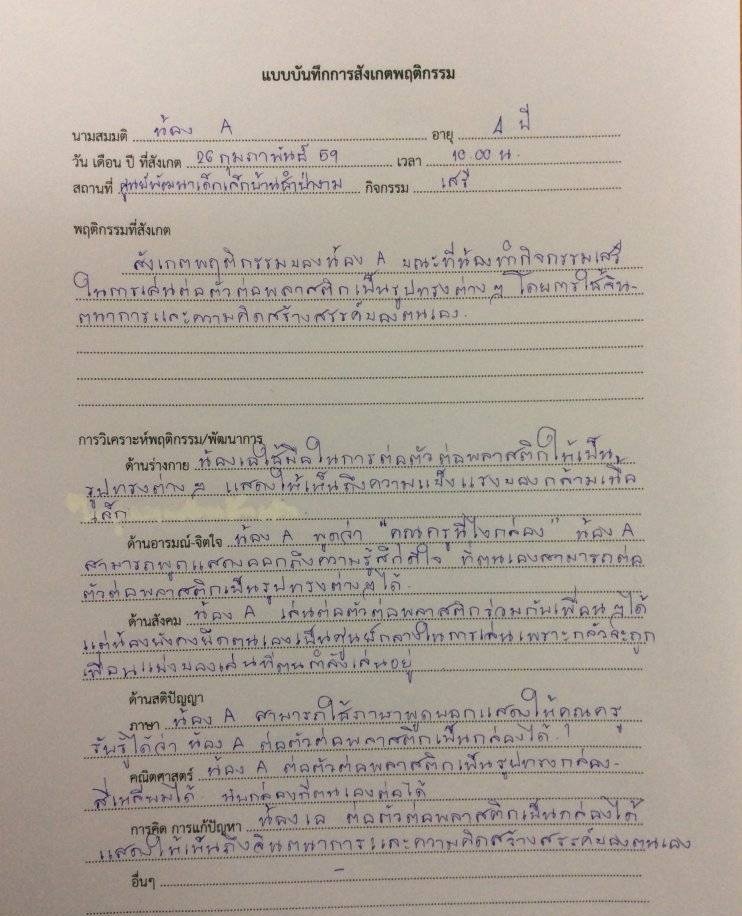 แบบบันทึกการสังเกตพฤติกรรม
นามสมมติ น้อง A อายุ 4 ปี
วัน เดือน ปี ที่สังเกต 26 กุมภาพันธ์ 59 เวลา 10.00 น.
สถานที่ ศูนย์พัฒนาเด็กเล็กบ้านลำป่างาม กิจกรรม เสรี
พฤติกรรมที่สังเกต
สังเกตพฤติกรรมของน้อง A ขณะที่น้องทำกิจกรรมเสรี
ในการเล่นต่อตัวต่อพลาสติกเป็นรูปทรงต่างๆ โดยการใช้จิน-
ตนาการและความคิดสร้างสรรค์ของตนเอง.
การวิเคราะห์พฤติกรรม/พัฒนาการ
ด้านร่างกาย น้องเอใช้มือในการต่อตัวต่อพลาสติกให้เป็น
รูปทรงต่างๆ แสดงให้เห็นถึงความแข็งแรงของกล้ามเนื้อ
เล็ก
ด้านอารมณ์-จิตใจ น้อง A พูดว่า "คุณครูนี่ไงกล่อง" น้อง A
สามารถพูดแสดงออกถึงความรู้สึกดีใจ ที่ตนเองสามารถต่อ
ตัวต่อพลาสติกเป็นรูปทรงต่างๆได้.
ด้านสังคม น้อง A เล่นต่อตัวต่อพลาสติกร่วมกับเพื่อนๆได้
แต่น้องยังคงยึดตนเองเป็นศูนย์กลางในการเล่นเพราะกลัวจะถูก
เพื่อนแย่งของเล่นที่ตนกำลังเล่นอยู่
ด้านสติปัญญา
ภาษา น้อง A สามารถใช้ภาษาพูดบอกแสดงให้คุณครู
รับรู้ได้ว่า น้อง A ต่อตัวต่อพลาสติกเป็นกล่องได้.
คณิตศาสตร์ น้อง A ต่อตัวต่อพลาสติกเป็นรูปทรงกล่อง-
สี่เหลี่ยมได้ นับกล่องที่ตนเองต่อได้
การคิด การแก้ปัญหา น้องเอ ต่อตัวต่อพลาสติกเป็นกล่องได้
แสดงให้เห็นถึงจินตนาการและความคิดสร้างสรรค์ของตนเอง
อื่นๆ -